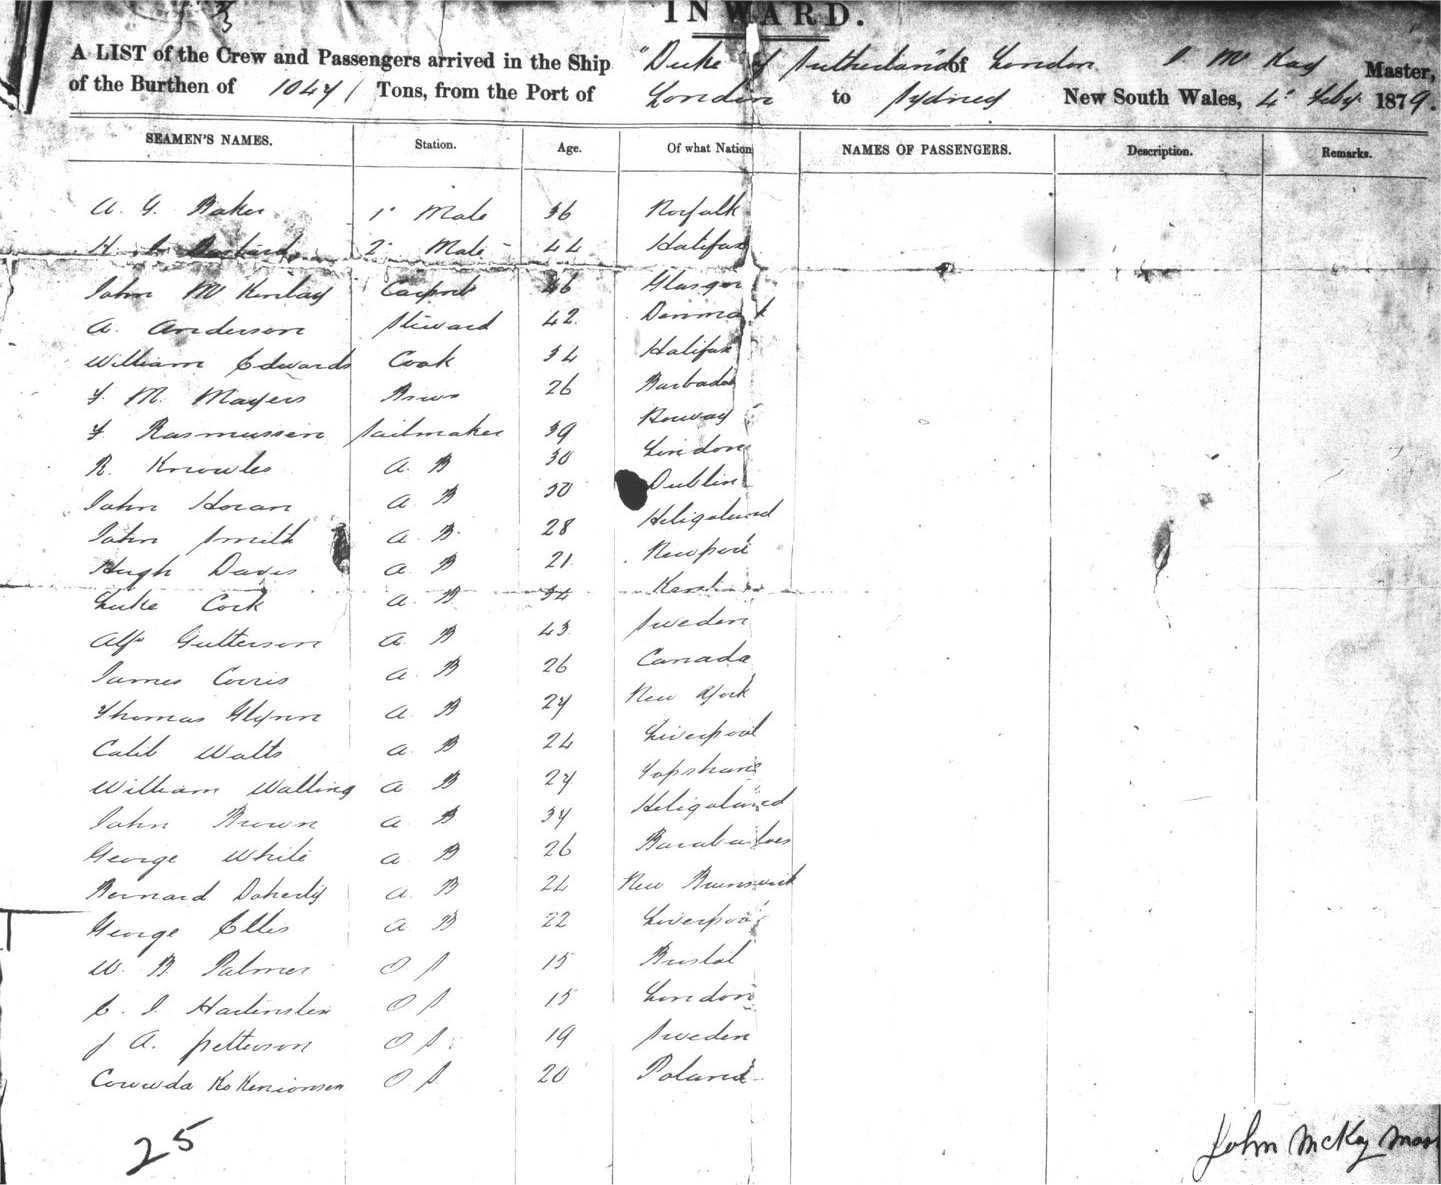 INWARD.
A LIST of the Crew and Passengers arrived in the Ship "Duke of Sutherland" of London McKay Master,
of the Burthen of 1047 Tons, from the Port of London to Sydney New South Wales, 4" Feby 1879.
SEAMEN'S NAMES. Station. Age. Of what Nation NAMES OF PASSENGERS. Description. Remarks.
A. G. Baker 1" Mate 36 Norfolk
H. 2" Mate 44 Halifax
John McKinlay Carpnt 46 Glasgow
A. Anderson Steward 42 Denmark
William Edwards Cook 34 Halifax
F. M. Mayers 26 Barbados
F. Rasmussen Sailmaker 39 Norway
R. Knowles A. B 30 London
John Horan A. B 50 Dublin
John Smith A. B. 28 Heligoland
Hugh Davis A. B 21 Newport
Luke Cock A. B 34
Alf Gutterson A. B 43 Sweden
James Corris A. B 26 Canada
Thomas Glynn A. B 27 New York
Caleb Watts A. B 24 Liverpool
William Walling A B 27 Topsham
John Brown A B 37 Heligoland
George White A B 26 Barabadoes
Bernard Doherty A. B 24 New Brunswick
George Ellis A B 22 Liverpool
W. B. Palmer O S 15 Bristol
C. I. O S 15 London
J A. Petterson O S. 19 Sweden
O S. 20 Poland
25
John McKay